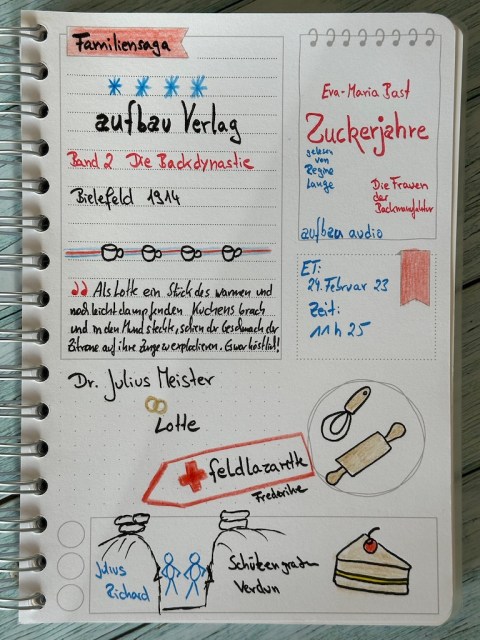 Familiensaga
aufbau Verlag
Band 2 Die Backdynastie
Bielefeld 1914
Als Lotte ein Stück des warmen und
noch leicht dampfenden Kuchens brach
und in den Mund steckte, schien der Geschmack der
Zitrone auf ihre Zunge zu explodieren. Es war köstlich!
Eva-Maria Bast
Zuckerjahre
gelesen
von
Regine
Lange
Die Frauen
der
Backmanufaktur
aufbau audio
ET:
24. Februar 23
Zeit:
11h 25
Dr. Julius Meister
Lotte
feldlazarett
Frederike
Julius
Richard
Schützengraben
Verdun